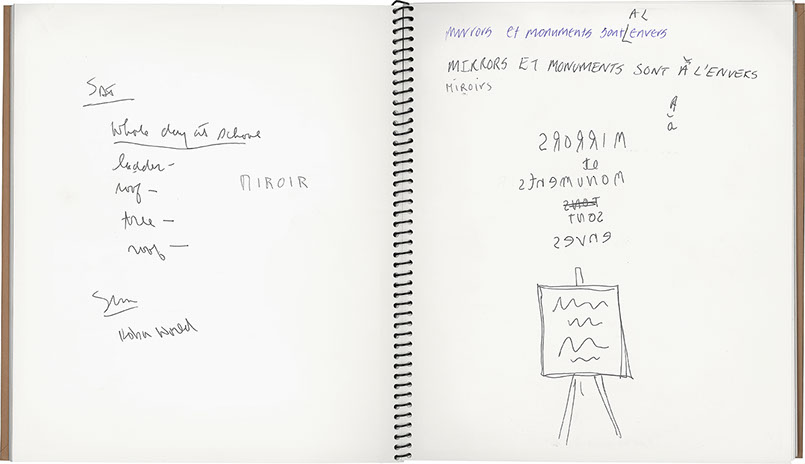 Sat
Whole day at school
ladder -
roof -
MIROIR
tree -
roof -
Sun
World
AL
Mirrors et monuments sont envers
MIRRORS ET MONUMENTS SONT À L'ENVERS
MIROIRS
A
à
MIRRORS
et
MONUMENTS
SONT
ENVERS